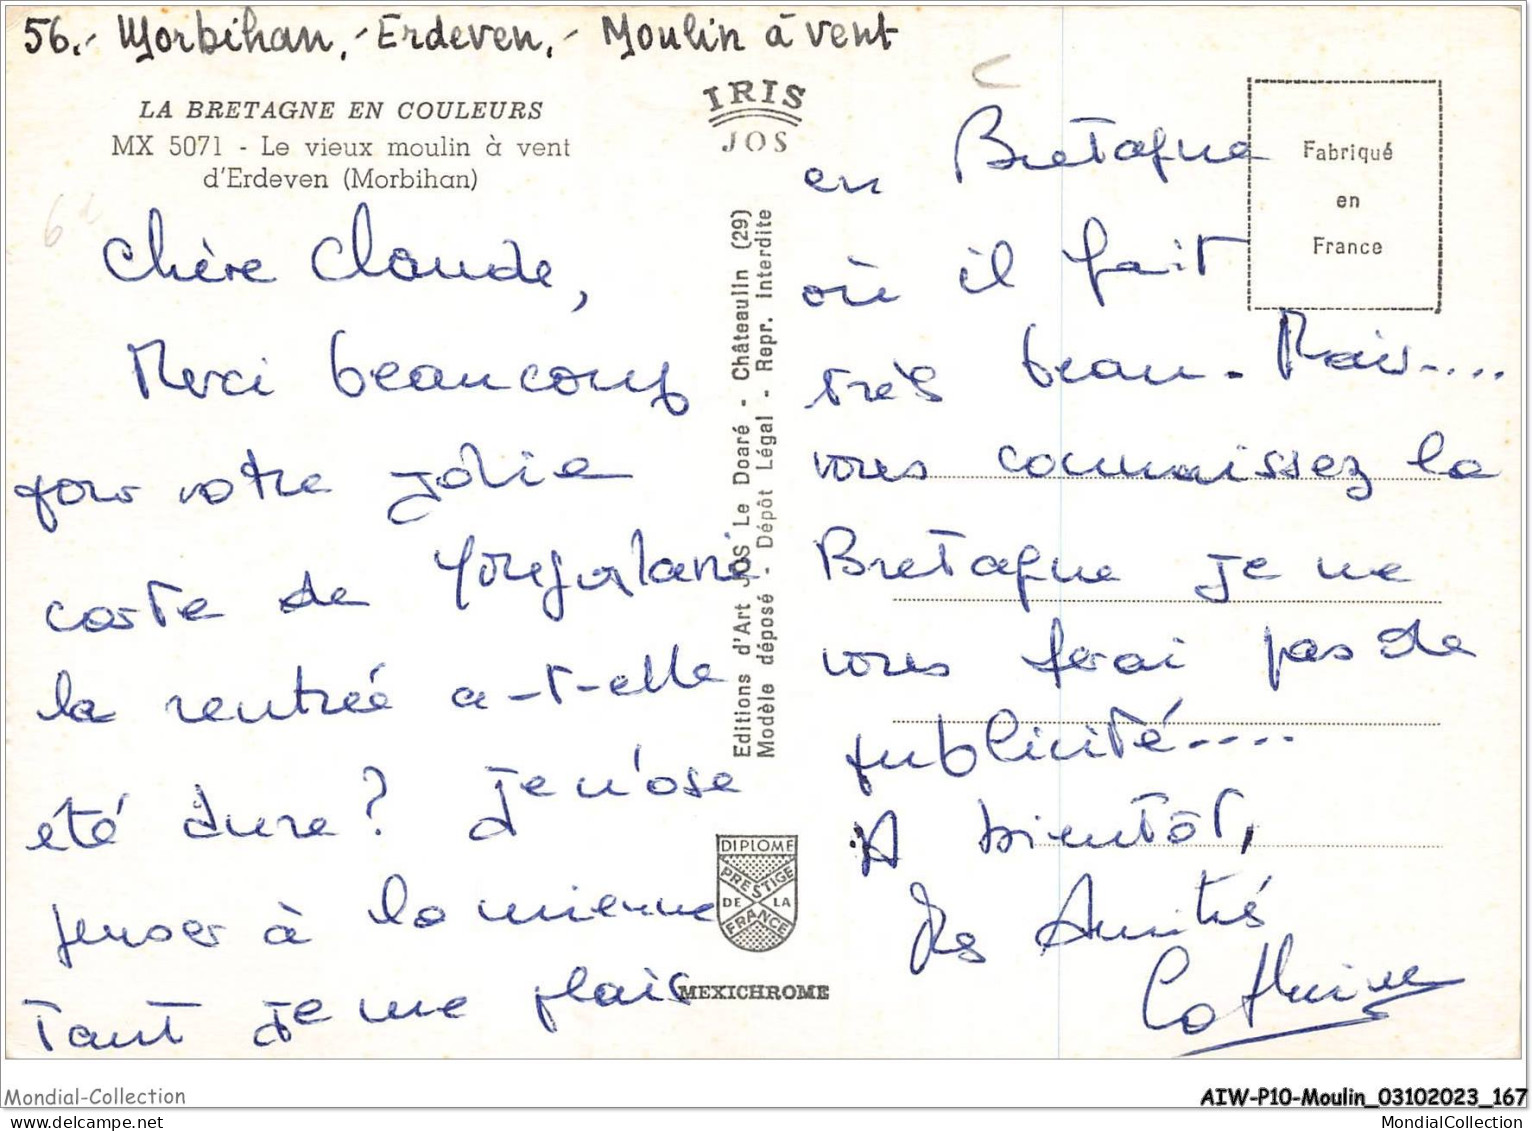 56.- Morbihan.- Erdeven.- Moulin à vent
LA BRETAGNE EN COULEURS
MX 5071 - Le vieux moulin à vent
d'Erdeven (Morbihan)
IRIS
JOS
Fabriqué
en
France
Chère Claude,
Merci beaucoup
pour votre jolie
carte de Yougoslavie
la rentrée a-t-elle
été dure? Je n'ose
penser à la mienne
Tant je me plais
Editions d'Art JOS Le Doaré - Châteaulin (29)
Modèle déposé - Dépôt Légal - Repr. Interdite
DIPLOME
PRESTIGE
DE LA
FRANCE
MEXICHROME
en Bretagne
où il fait
très beau - Mais....
vous connaissez la
Bretagne je ne
vous ferai pas de
publicité....
A bientôt,
Mes Amitiés
Catherine
Mondial-Collection
AIW-P10-Moulin_03102023_167
Mondial-Collection
MondialCollection